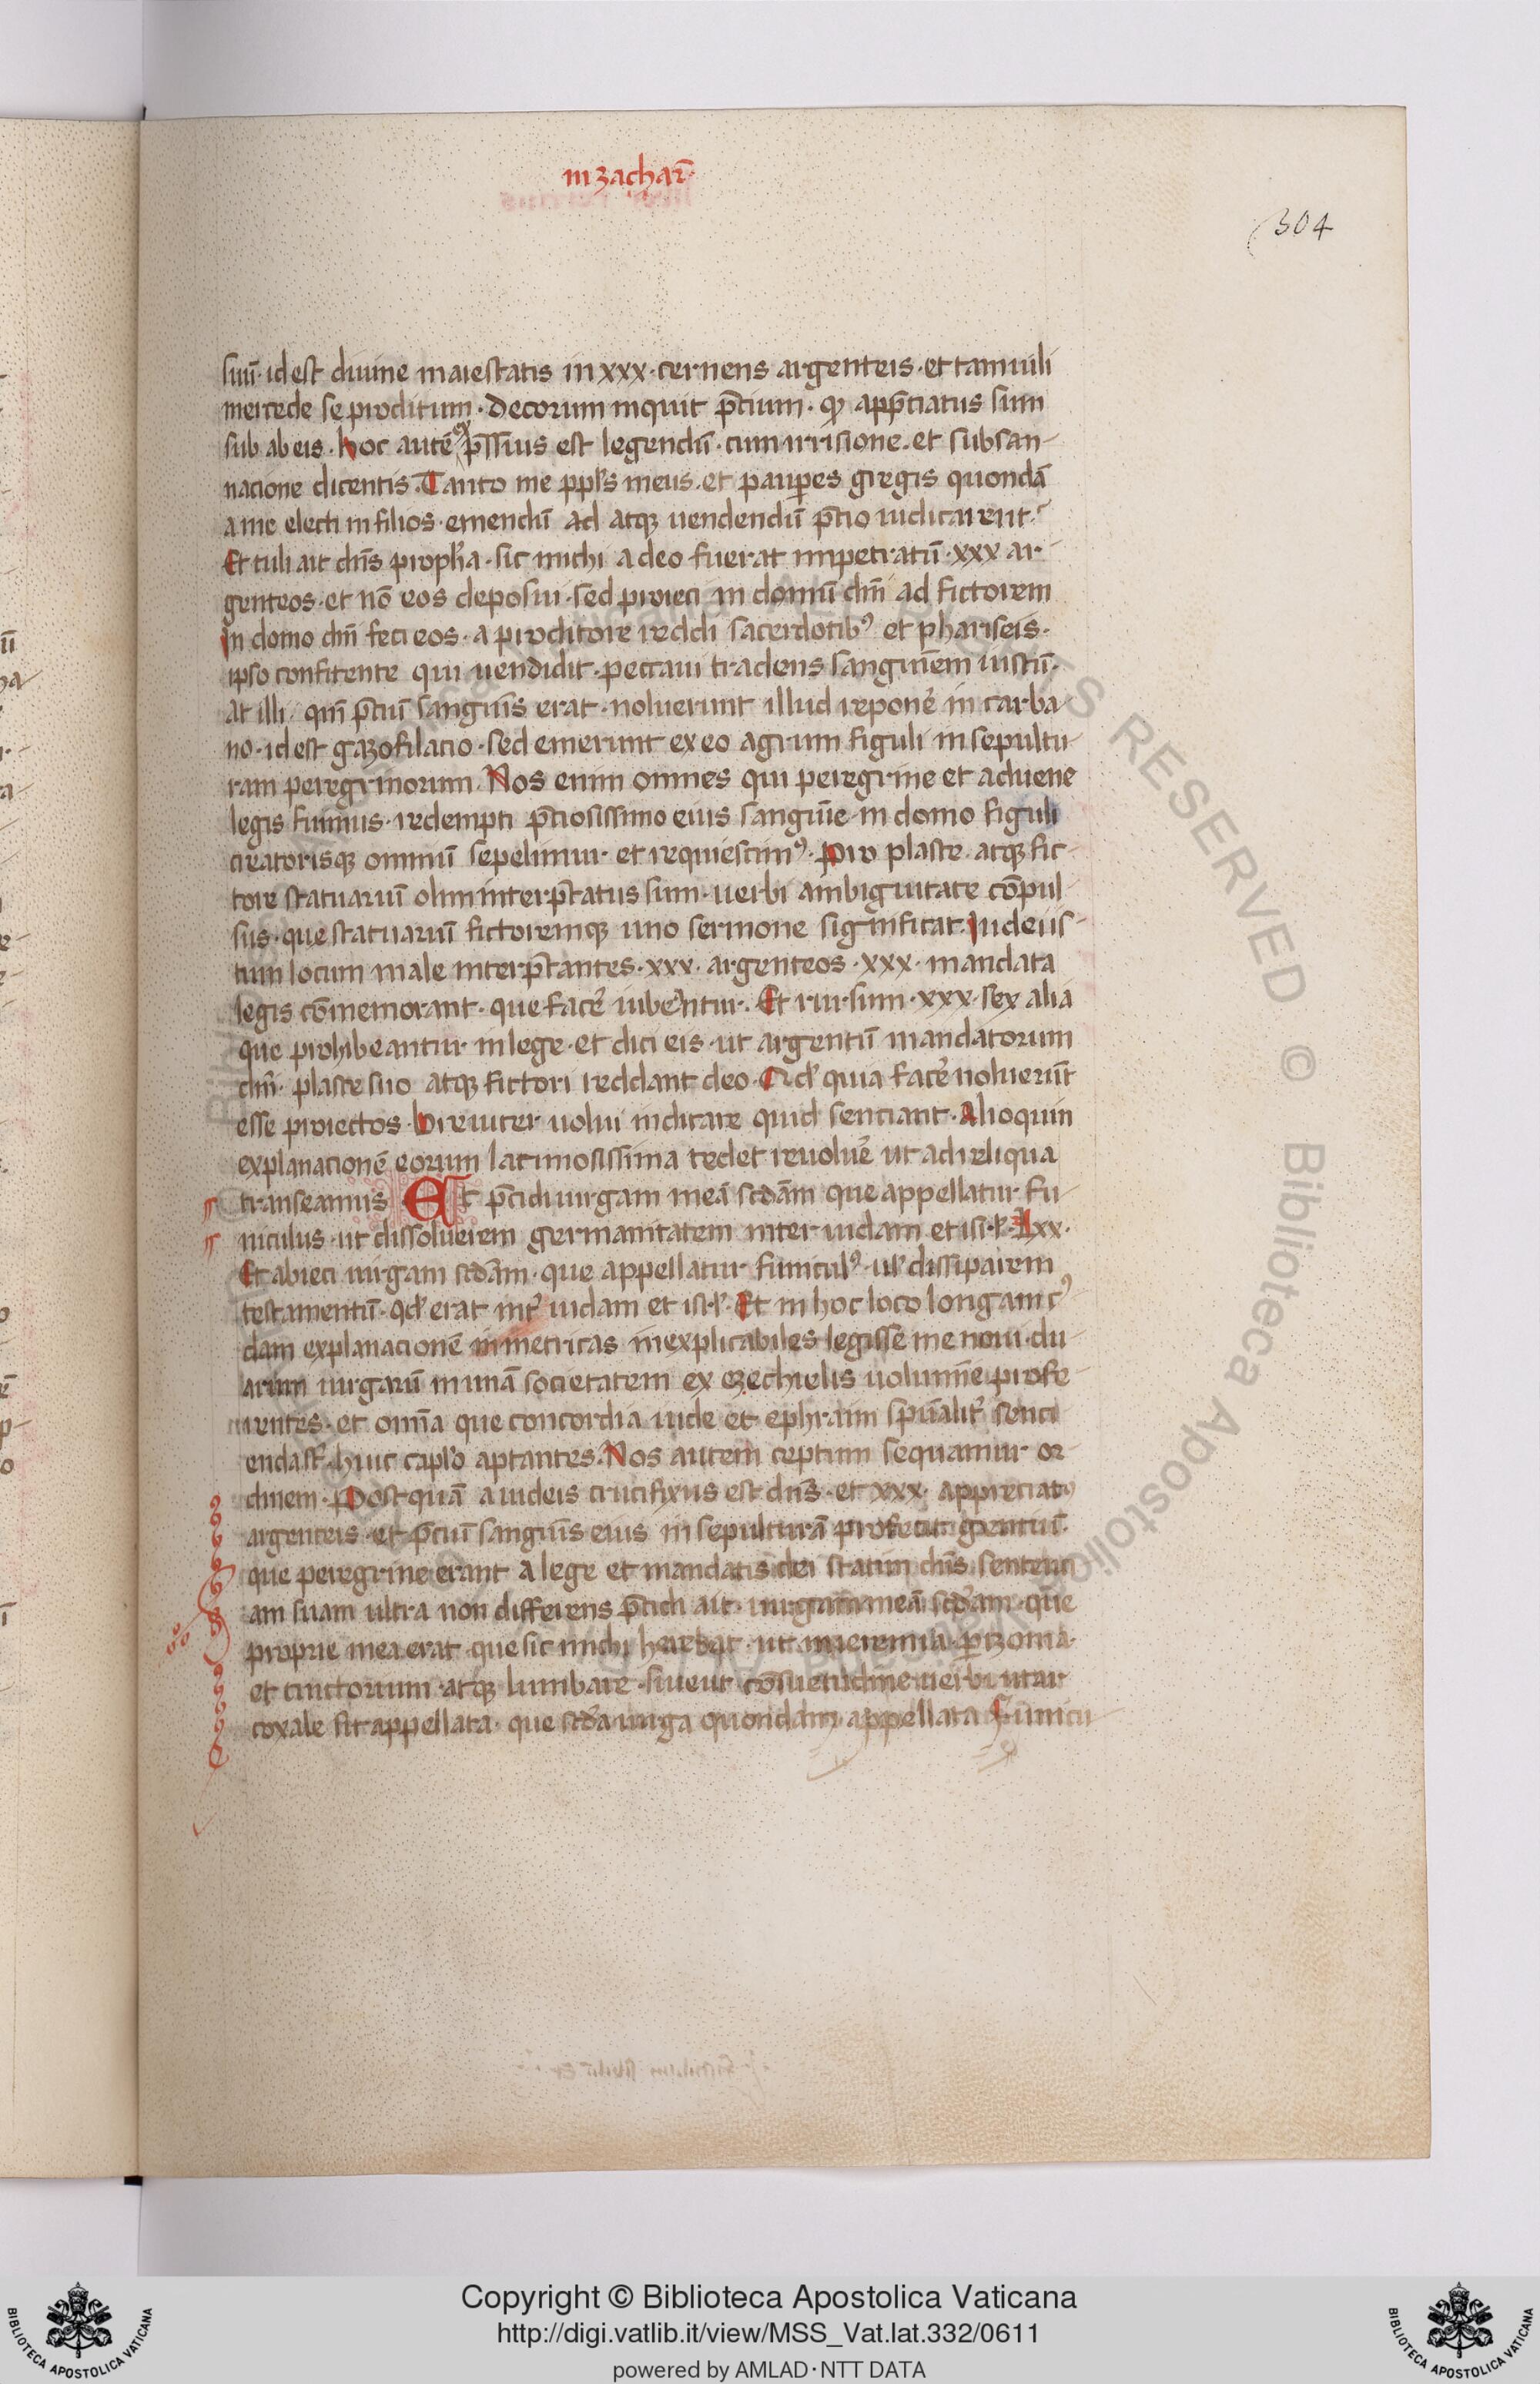 in zachar̄
304
suū· id est diuine maiestatis in xxx· cernens argenteis· et tam uili
mercede se proditum· Decorum inquit p̄cium· qḋ app̄ciatus sum
sub ab eis· hoc autē ex p̄ssius est legendū· cum irrisione· et subsan-
nacione dicentis· Tanto me ppl̄s meus· et paup̄es gregis quondā
a me electi in filios· emendū ad atq; uendendū p̄cio iudicarent·
Et tuli ait dn̄s proph̄a· sic michi a deo fuerat impetratū· xxx ar-
genteos· et nō eos deposui· sed proieci in domū dn̄i ad fictorem
In domo dn̄i feci eos· a proditore reddi sacerdotib⁹ et phariseis·
ipso confitente qui uendidit· peccaui tradens sanguin̄em iustū·
at illi· qm̄ p̄ciū sanguīs erat· noluerunt illud reponē in carba
no· id est gazofilacio· sed emerunt ex eo agrum figuli in sepultu-
ram peregrinorum· Nos enim omnes qui peregrine et aduene
legis fuimus· redempti p̄ciosissimo eius sanguīe in domo figuli
creatorisq; omniū sepelimur· et requiescim⁹· Pro plaste· atq; fic-
tore statuariū olim interp̄tatus sum· uerbi ambiguitate cōpul-
sus· que statuariū fictoremq; uno sermone significat· Iudei is-
tum locum male interp̄tantes· xxx· argenteos· xxx· mandata
legis cōmemorant· que facē iubentur· Et rursum· xxx· sex alia
que prohibeantur in lege· et dici eis· ut argentū mandatorum
dn̄i· plaste suo atq; fictori reddant deo· Qd̄ quia facē noluerūt
esse proiectos· breuiter uolui indicare quid senciant· Alioquin
explanacionē eorum latinosissima tedet reuoluē ut ad reliqua
transeamus Et p̄cidi uirgam meā sc̄dam que appellatur fu-
niculus· ut dissoluerem germanitatem inter iudam et isr̄l· Lxx·
Et abieci uirgam sc̄dam· que appellatur funicul⁹· ut dissiparem
testamentū· qd̄ erat int̄ iudam et isr̄l· Et in hoc loco longam c⁹
dam explanacionē in metricas inexplicabiles legisse me noui· du-
arum uirgarū in unā societatem ex ezechielis uolumīe profe
rentes· et om̄a que concordia iude et ephraim spūalit̄ senci
enda st̄· huic capl̄o aptantes· Nos autem ceptum sequamur or-
dinem· Postquā a iudeis crucifixus est dn̄s· et xxx· appreciat⁹
argenteis· et p̄ciū sanguīs eius in sepulturā profecit gentiū·
que peregrine erant a lege et mandatis dei statim dn̄s sentenci
am suam ultra non differens p̄cidi ait· uirgam meā sc̄dam· que
proprie mea erat· que sic michi herebat· ut in ieremia· perizoma·
et cinctorium· atq; lumbare· siue ut cōsuetudine uerbi utar
coxale sit appellata· que sc̄da uirga quondam appellata funicu
Copyright © Biblioteca Apostolica Vaticana
http://digi.vatlib.it/view/MSS_Vat.lat.332/0611
powered by AMLAD·NTT DATA
BIBLIOTECA APOSTOLICA VATICANA
BIBLIOTECA APOSTOLICA VATICANA